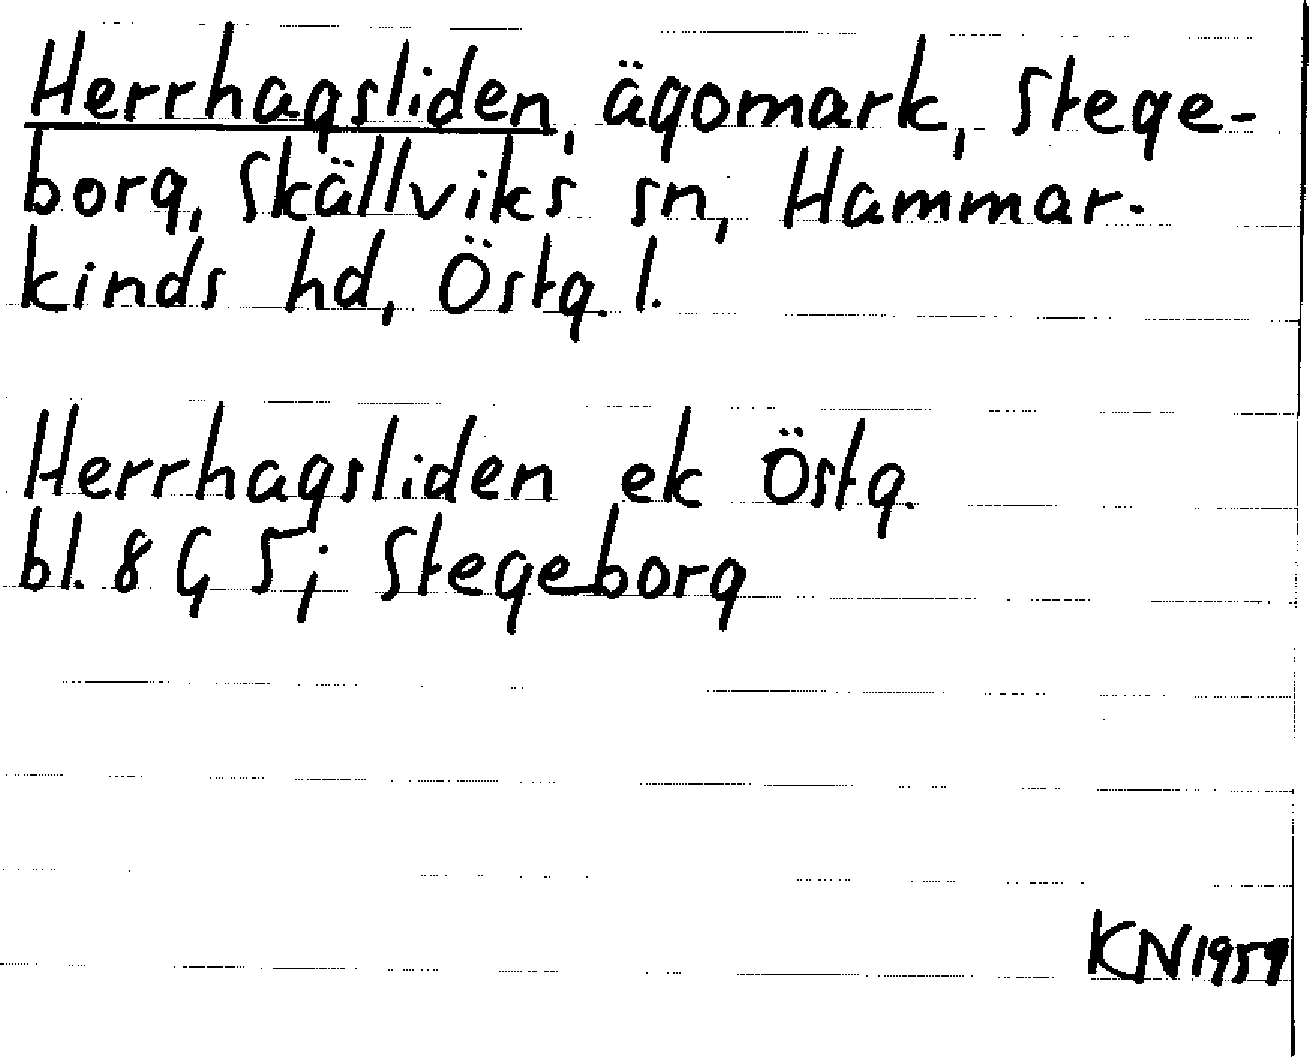 Herrhagsliden, ägomark, Stege-
borg, Skällviks sn, Hammar-
kinds hd, Östg. l.
Herrhagsliden ek Östg.
bl. 8 G 5; Stegeborg
KN 1959